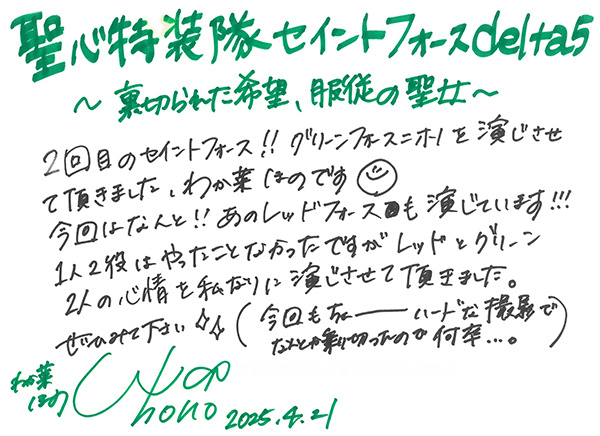 聖心特装隊セイントフォースdelta5
～裏切られた希望、服従の聖女～
2回目のセイントフォース!! グリーンフォースニホノを演じさせ
て頂きました、わか葉ほのです
今回はなんと!! あのレッドフォースも演じています!!!
1人2役はやったことなかったですがレッドとグリーン
2人の心情を私なりに演じさせて頂きました。
ぜひみて下さい (今回もちょーーハードな撮影で
なんとか乗り切ったので何卒…。)
わか葉
ほの
hono 2025.4.21